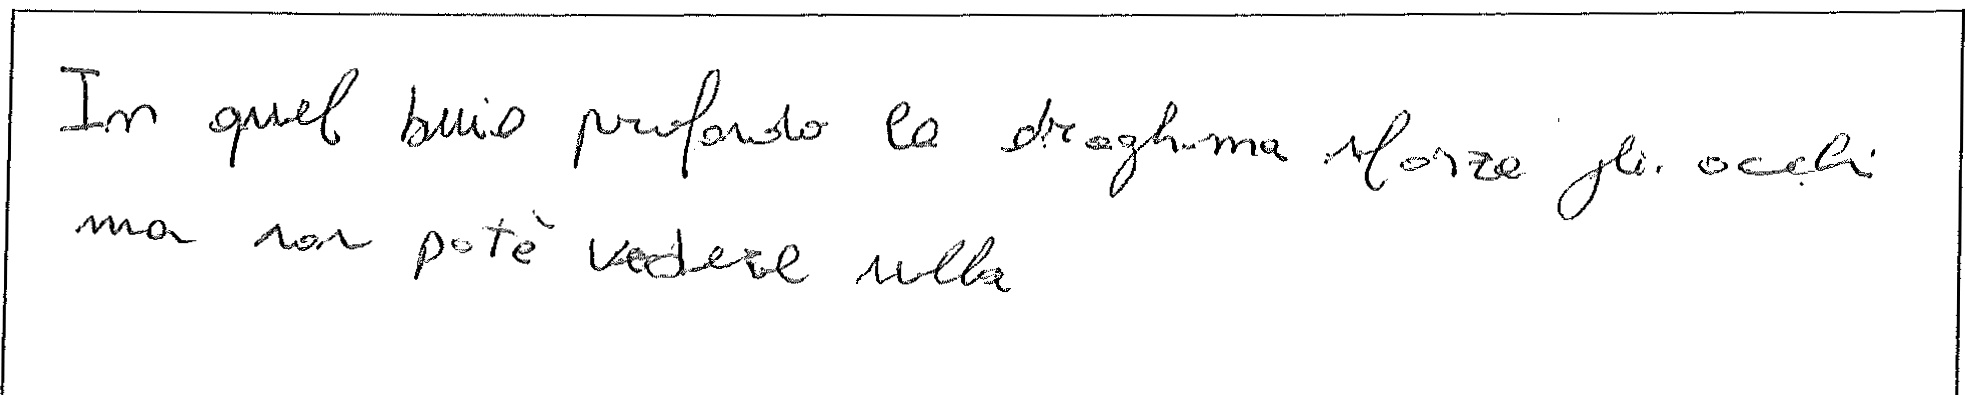 In quel buio profondo la draghima sforza gli occhi
ma non potè vedere nulla